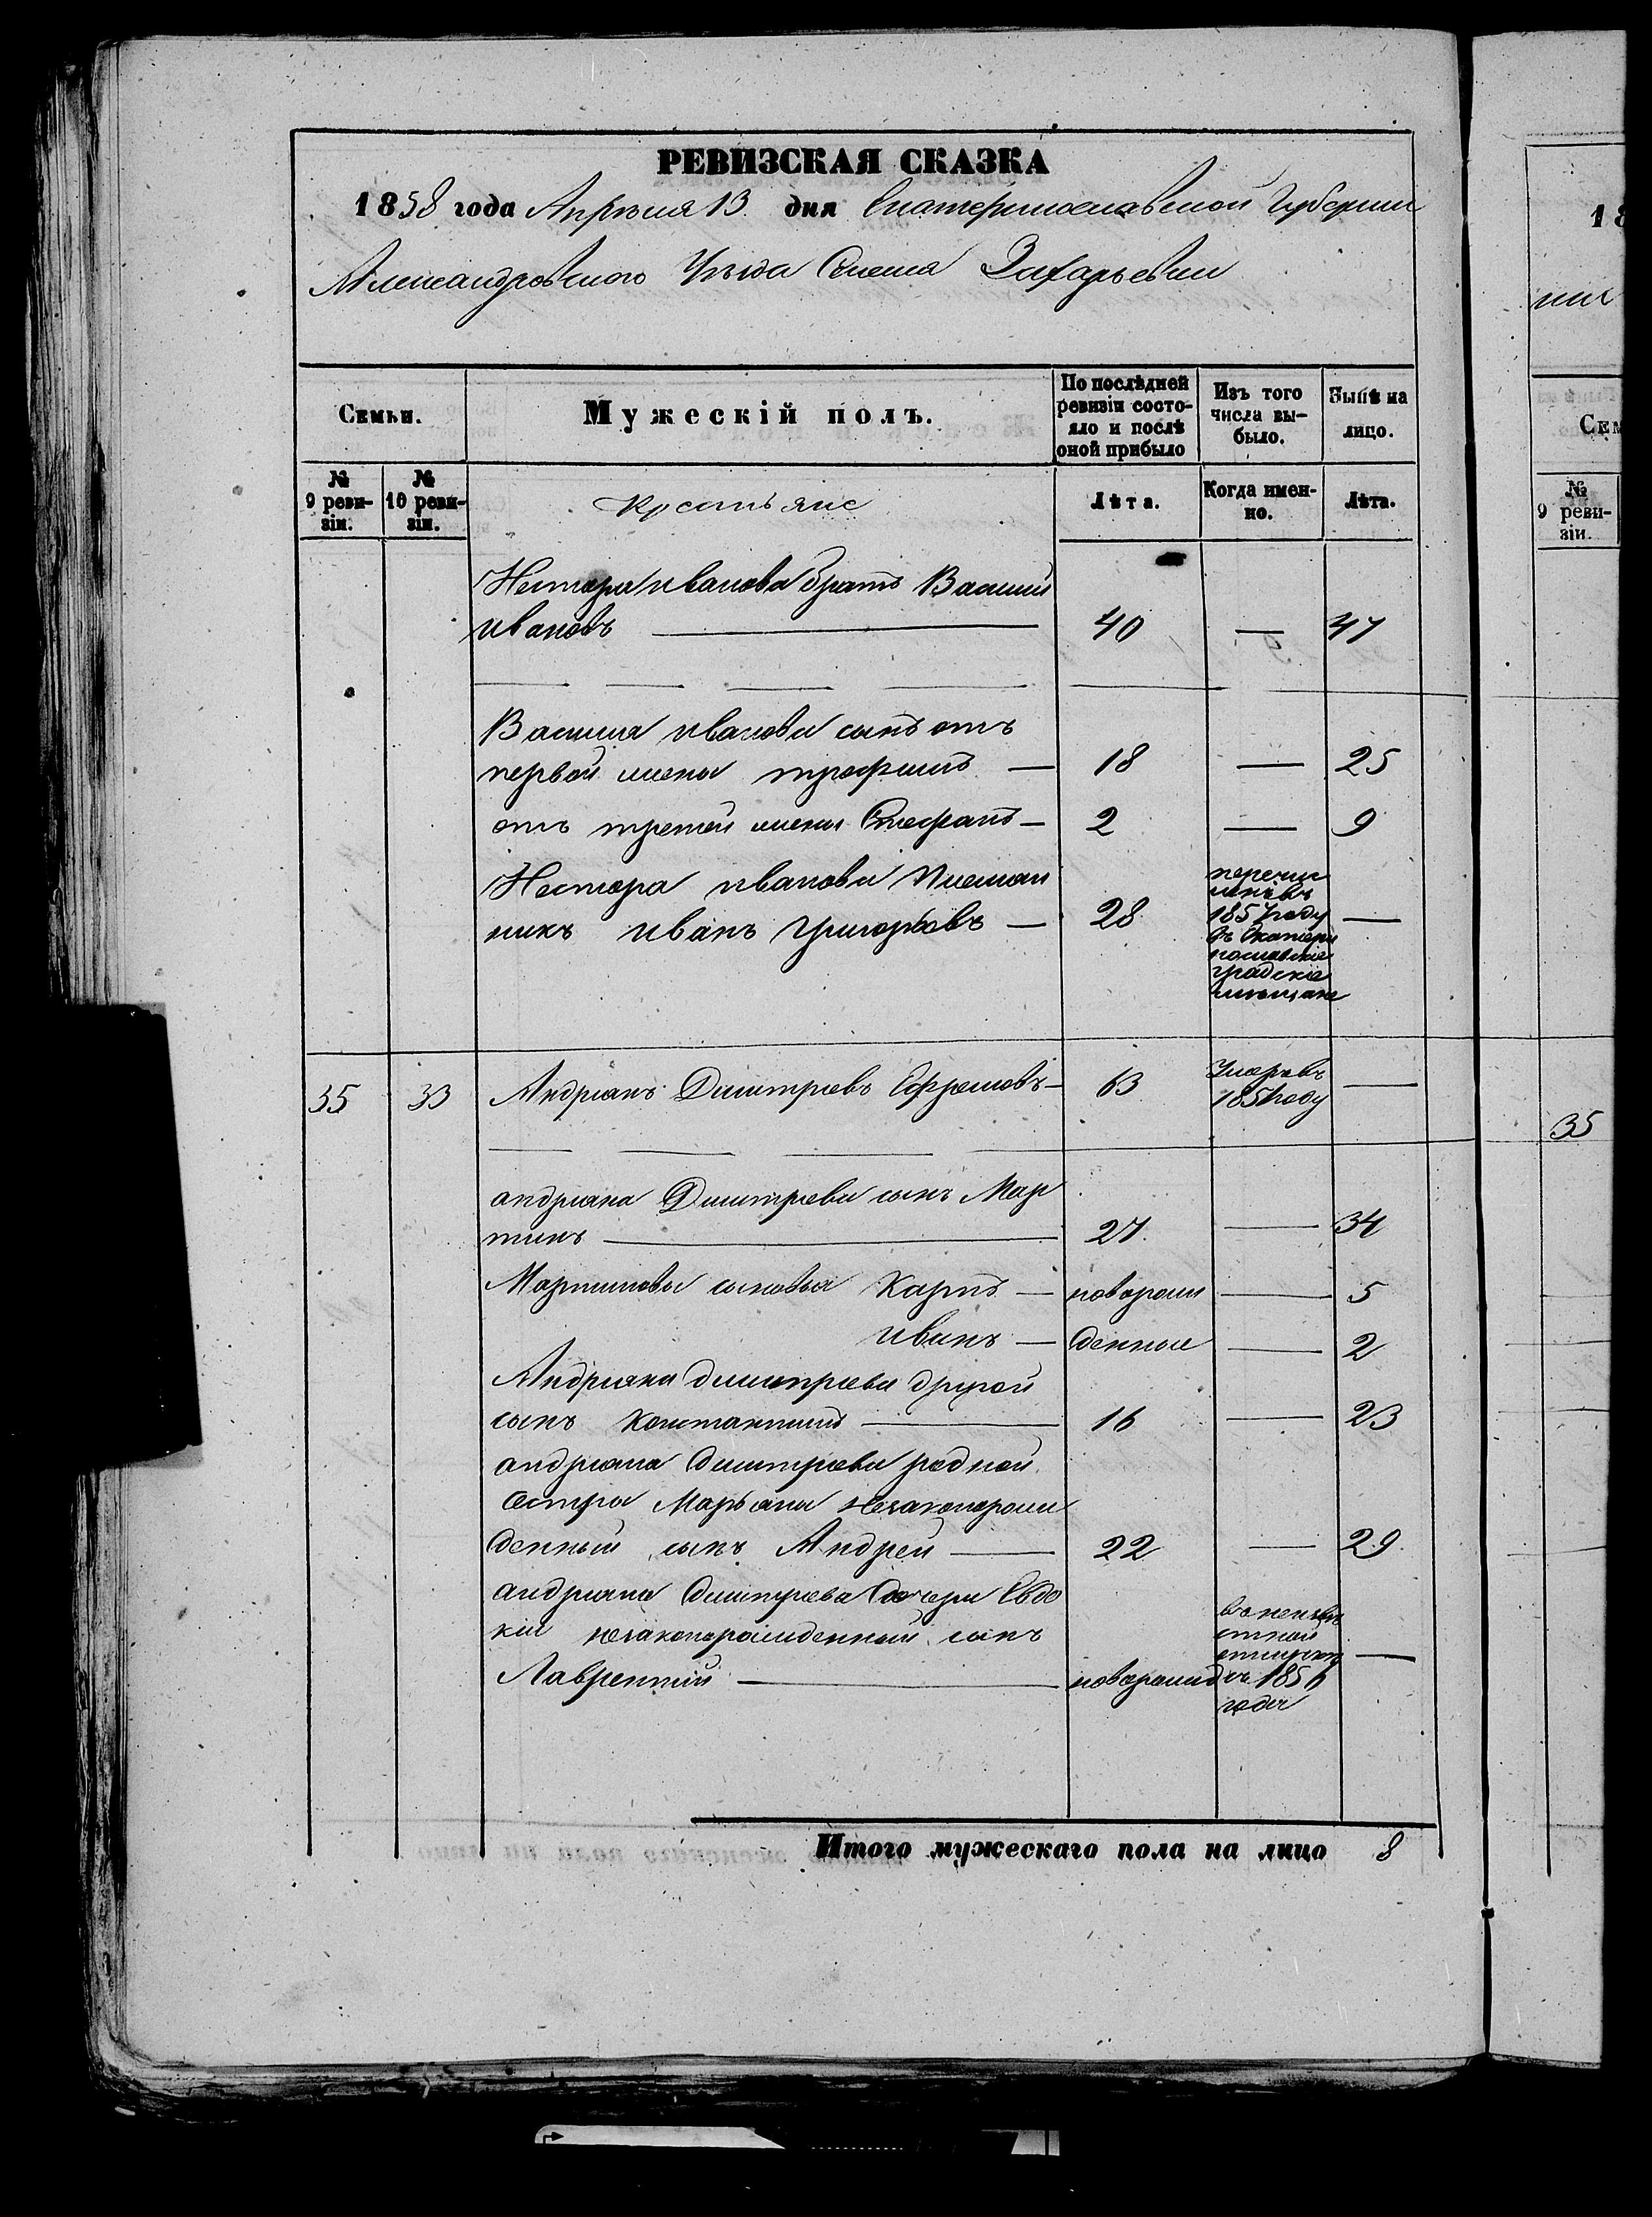 РЕВИЗСКАЯ СКАЗКА
1858 года Апреля 13 дня Екатеринославской Губернии
Александровского Уезда Селения Захарьевки
Семьи.
Мужескій полъ.
По послѣдней ревизіи состояло и послѣ оной прибыло
Изъ того числа выбыло.
Нынѣ на лицо.
№ 9 ревизіи.
№ 10 ревизіи.
Крестьяне
Лѣта.
Когда именно.
Лѣта.
Нестора иванова братъ Василий
ивановъ — 40 — 47
Василия иванова сынъ отъ
первой жены трофимъ — 18 — 25
отъ третей жены Стефанъ — 2 — 9
Нестора иванова Племян
никъ иванъ григорьевъ — 28 —
перечис
ленъ въ
1857 году
въ Екатери
нославские
градские
мещане
35 33 Андрианъ Димитриевъ Ефремовъ — 63 Умеръ въ —
1851 году
андриана Димитриева сынъ Мар
тинъ — 27 — 34
Мартиновы сыновья Карпъ — новорож — 5
иванъ — денные — 2
Андриана димитриева другой
сынъ Константинъ — 16 — 23
андриана димитриева родной
сестры Марьяны незаконорож
денный сынъ Андрей — 22 — 29
андриана димитриева дочери Евдо
кии незаконорожденный сынъ
Лаврентий — новорожд
отлучки —
съ 1856
года
Итого мужескаго пола на лицо 8
18
Сем
№ 9 ревизіи.
35